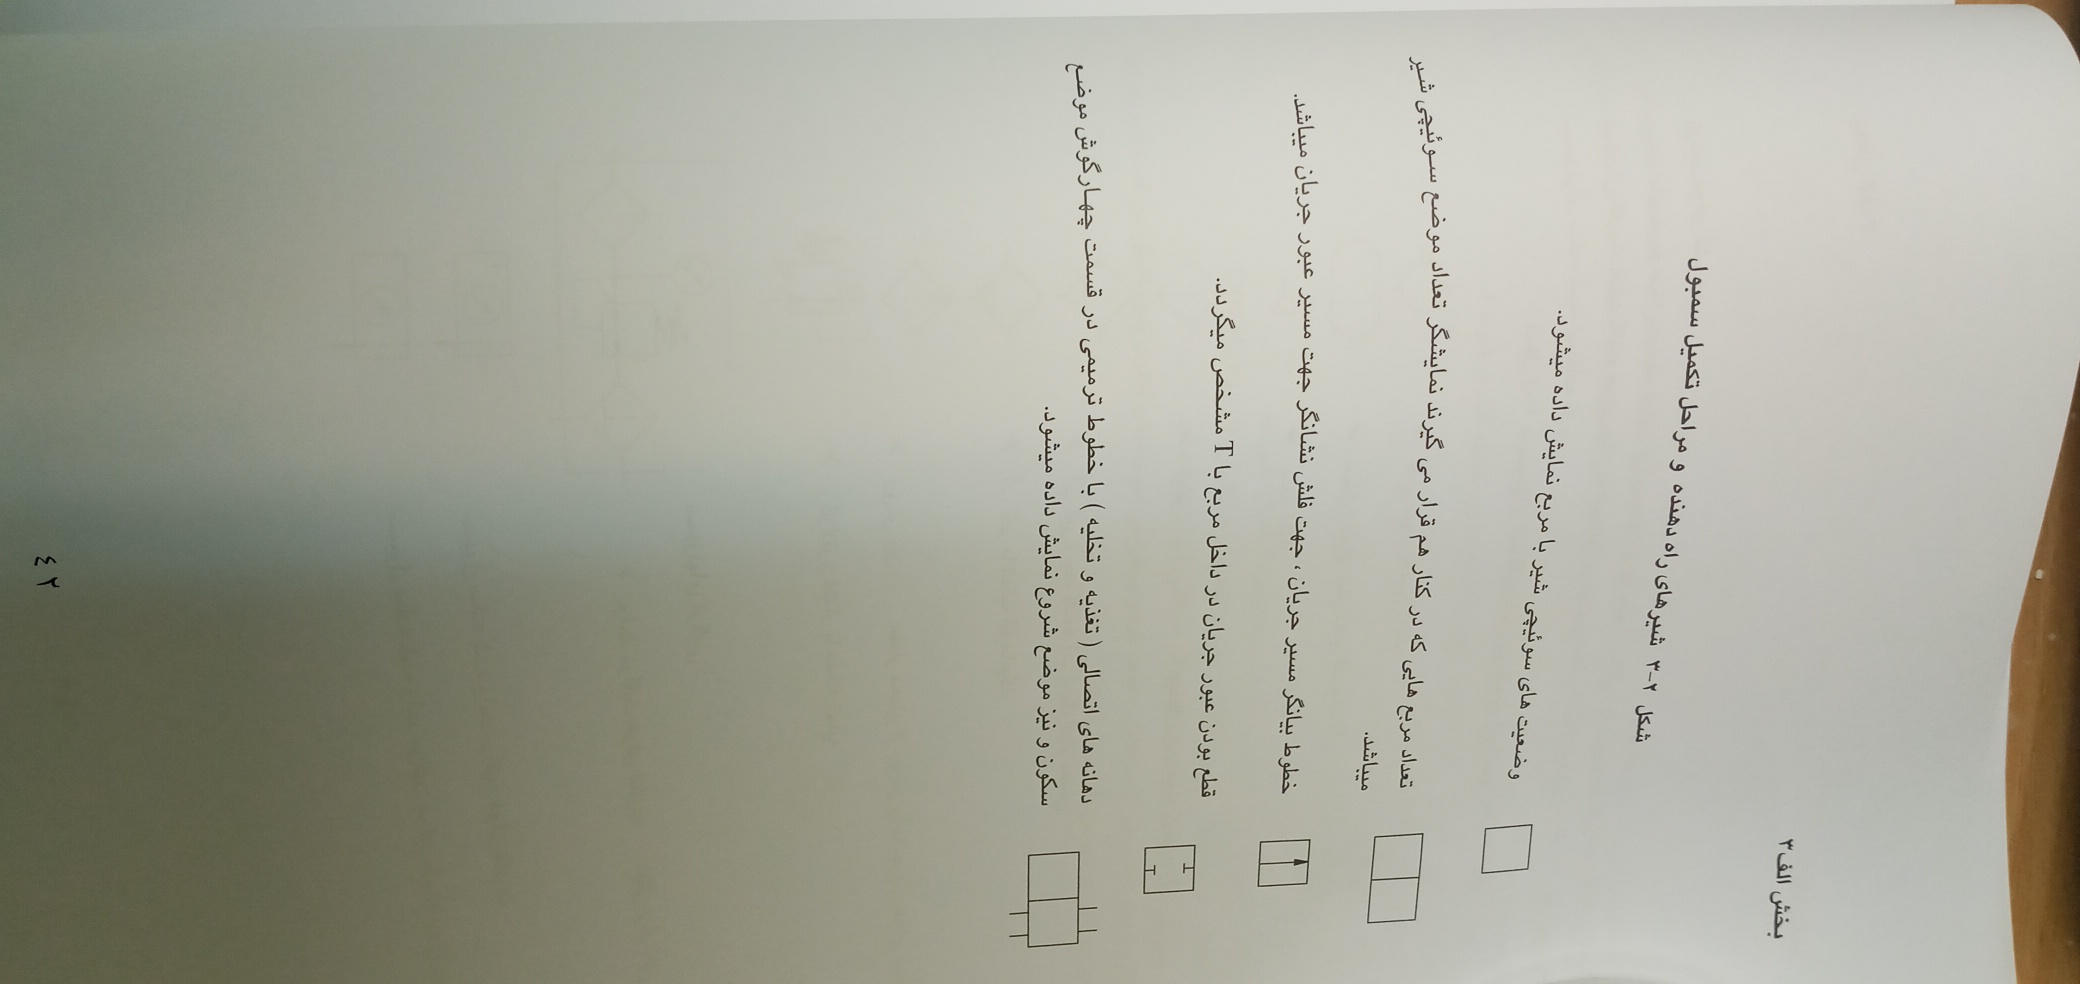 بخش الف ۳
شکل ۲-۳ شیرهای راه دهنده و مراحل تکمیل سمبول
وضعیت های سوئیچی شیر با مربع نمایش داده میشود.
تعداد مربع هایی که در کنار هم قرار می گیرند نمایشگر تعداد موضع سوئیچی شیر
میباشد.
خطوط بیانگر مسیر جریان ، جهت فلش نشانگر جهت مسیر عبور جریان میباشد.
قطع بودن عبور جریان در داخل مربع با T مشخص میگردد.
دهانه های اتصالی ( تغذیه و تخلیه ) با خطوط ترمیمی در قسمت چهارگوش موضع
سکون و نیز موضع شروع نمایش داده میشود.
٤٢